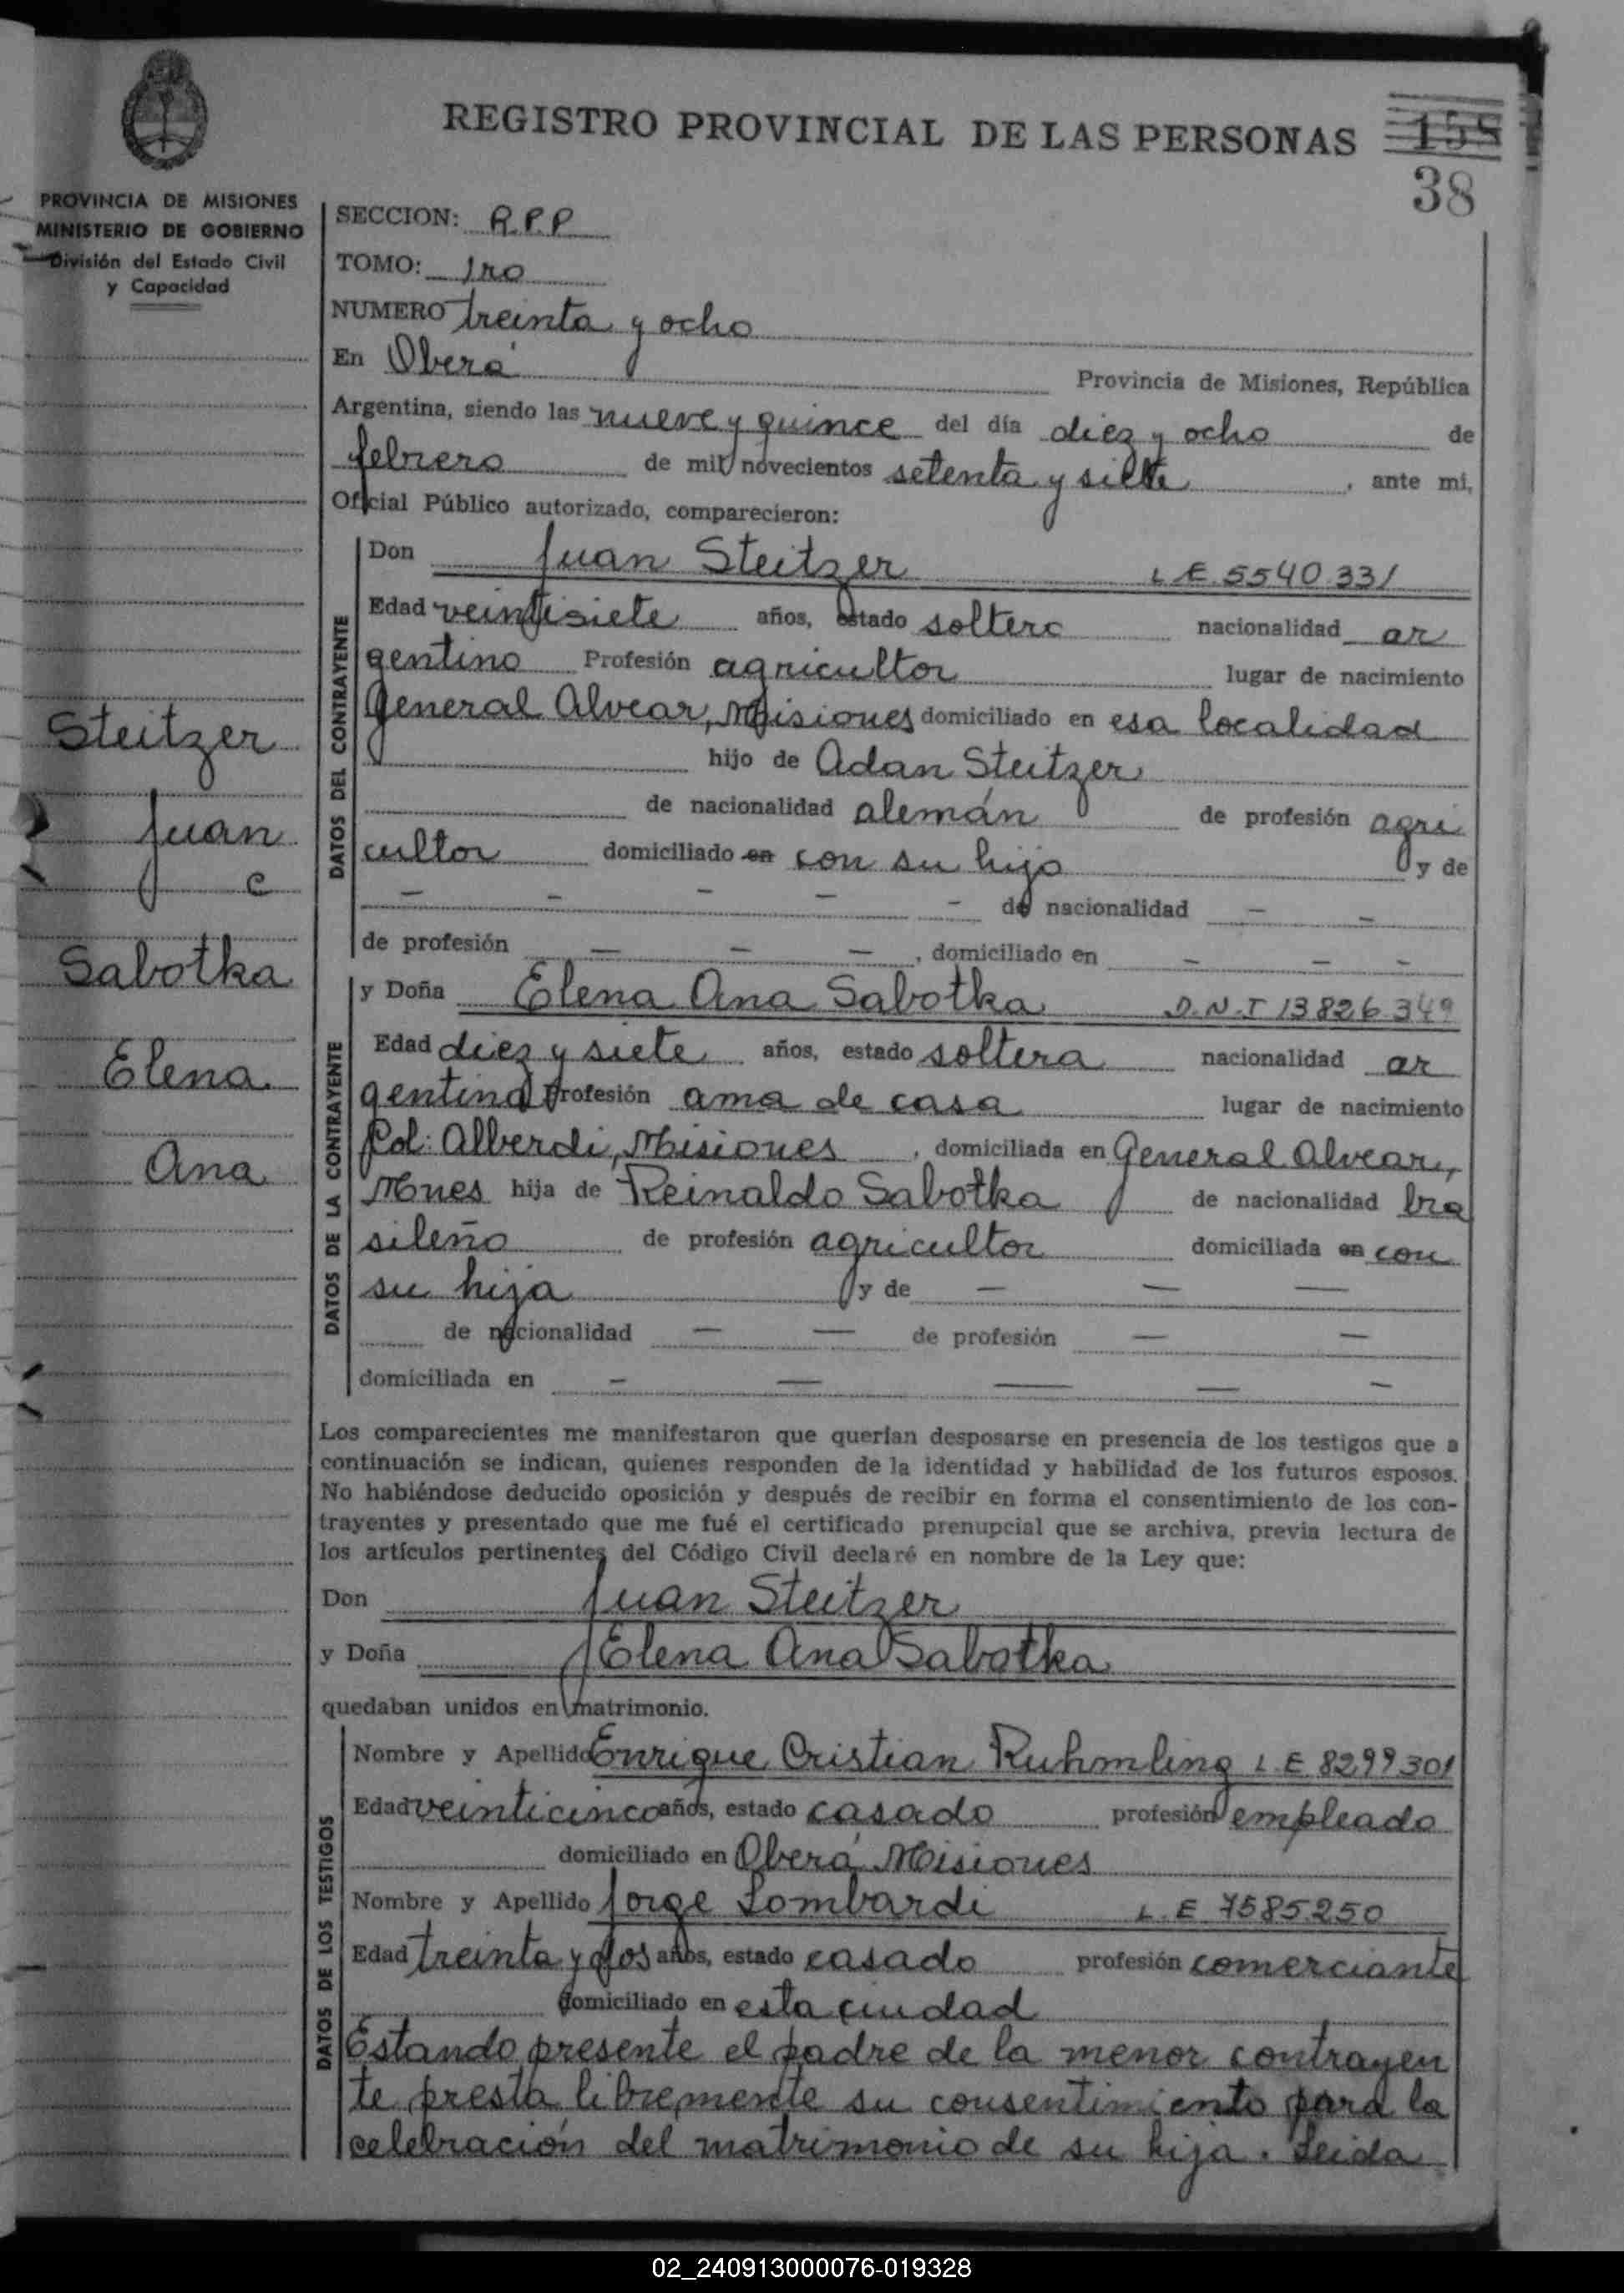 REGISTRO PROVINCIAL DE LAS PERSONAS 158
38
PROVINCIA DE MISIONES
MINISTERIO DE GOBIERNO
División del Estado Civil
y Capacidad
SECCION: R.P.P
TOMO: 1ro
NUMERO treinta y ocho
En Oberá Provincia de Misiones, República
Argentina, siendo las nueve y quince del día diez y ocho de
febrero de mil novecientos setenta y siete, ante mi,
Oficial Público autorizado, comparecieron:
Steitzer
Juan
c
Sabotka
Elena
Ana
DATOS DEL CONTRAYENTE
Don Juan Steitzer L.E. 5540.331
Edad veintisiete años, estado soltero nacionalidad ar
gentino Profesión agricultor lugar de nacimiento
General Alvear, Misiones domiciliado en esa localidad
hijo de Adan Steitzer
de nacionalidad alemán de profesión agri
cultor domiciliado en con su hijo y de
- - - - - de nacionalidad - -
de profesión - - -, domiciliado en - - -
DATOS DE LA CONTRAYENTE
y Doña Elena Ana Sabotka D.N.I 13826349
Edad diez y siete años, estado soltera nacionalidad ar
gentina Profesión ama de casa lugar de nacimiento
Col: Alberdi, Misiones, domiciliada en General Alvear,
Mnes hija de Reinaldo Sabotka de nacionalidad bra
sileño de profesión agricultor domiciliada en con
su hija y de - - -
de nacionalidad - - de profesión - -
domiciliada en - - - - -
Los comparecientes me manifestaron que querían desposarse en presencia de los testigos que a
continuación se indican, quienes responden de la identidad y habilidad de los futuros esposos.
No habiéndose deducido oposición y después de recibir en forma el consentimiento de los con-
trayentes y presentado que me fué el certificado prenupcial que se archiva, previa lectura de
los artículos pertinentes del Código Civil declaré en nombre de la Ley que:
Don Juan Steitzer
y Doña Elena Ana Sabotka
quedaban unidos en matrimonio.
DATOS DE LOS TESTIGOS
Nombre y Apellido Enrique Cristian Ruhmling L.E 8299301
Edad veinticinco años, estado casado profesión empleado
domiciliado en Oberá Misiones
Nombre y Apellido Jorge Lombardi L.E 7585250
Edad treinta y dos años, estado casado profesión comerciante
domiciliado en esta ciudad
Estando presente el padre de la menor contrayen
te presta libremente su consentimiento para la
celebración del matrimonio de su hija. Leida
02_240913000076-019328